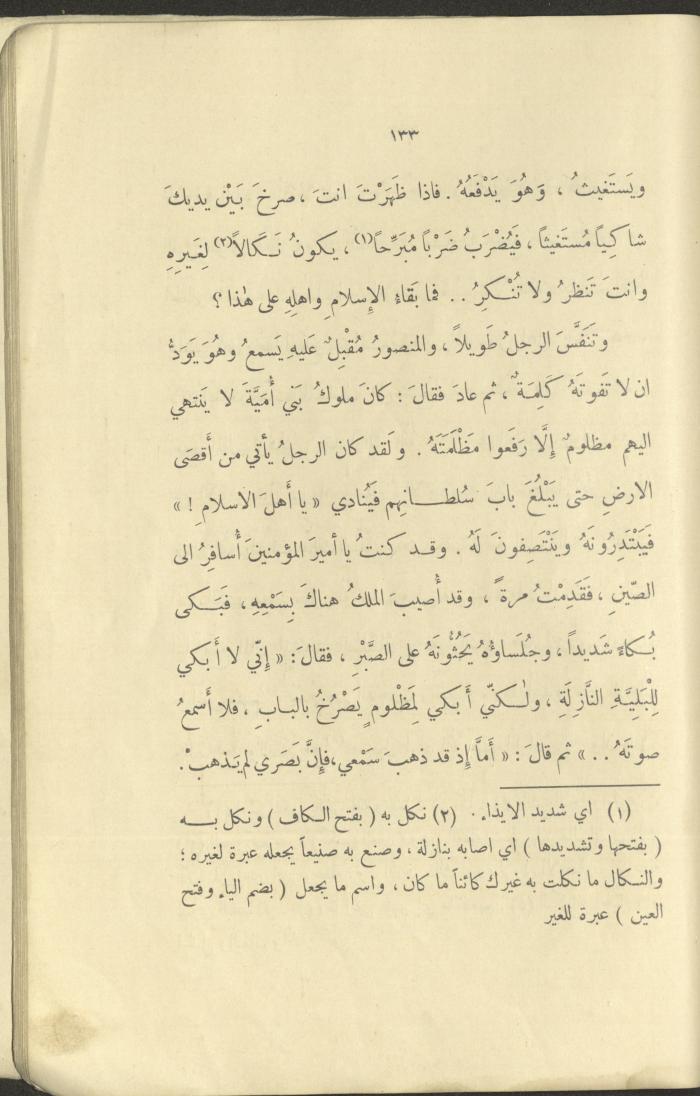 ١٣٣
ويَستَغيثُ ، وَهُوَ يَدْفَعُهُ . فاذا ظَهَرْتَ انتَ ، صرخَ بَيْن يديكَ
شاكِياً مُستَغيثاً ، فَيُضْرَبُ ضَرْباً مُبَرِّحاً(١) ، يكونُ نَكَالاً(٢) لِغَيرِهِ
وانتَ تَنظرُ ولا تُنْكِرُ .. فما بَقَاءُ الإِسلامِ واهلِهِ على هٰذا ؟
وتَنَفَّسَ الرجلُ طَويلاً ، والمنصورُ مُقْبِلٌ عَليهِ يَسمعُ وهُوَ يَوَدُّ
ان لا تَفوتَهُ كَلِمَةٌ ، ثم عادَ فقالَ : كانَ ملوكُ بَني أُمَيَّةَ لا يَنتهي
اليهم مظلومٌ إِلَّا رَفَعوا مَظْلَمَتَهُ . ولَقد كان الرجلُ يأتي من أَقصَى
الارضِ حتى يَبْلُغَ بابَ سُلطانِهم فَيُنادي « يا أَهلَ الاسلامِ ! »
فيَبْتَدِرُونَهُ ويَنْتَصِفونَ لَهُ . وقد كنتُ يا أميرَ المؤمنينَ أُسافِرُ الى
الصّينِ ، فَقَدِمْتُ مرةً ، وقد أُصيبَ الملكُ هناكَ بِسَمْعِهِ ، فَبَكى
بُكاءً شَديداً ، وجُلَساؤُهُ يَحُثُّونَهُ على الصَّبْرِ ، فقالَ : « إِنّي لا أَبكي
لِلْبَلِيَّةِ النَّازِلَةِ ، ولٰكنّي أَبكي لِمَظْلومٍ يَصْرُخُ بالبابِ ، فلا أَسمعُ
صوتَهُ .. » ثم قالَ : « أَمَّا إِذ قد ذهبَ سَمْعي ، فإِنَّ بَصَري لم يَذهبْ .
(١) اي شديد الايذاء . (٢) نكل به ( بفتح الكاف ) ونكل به
( بفتحها وتشديدها ) اي اصابه بنازلة ، وصنع به صنيعاً يجعله عبرة لغيره ؛
والنكال ما نكلت به غيرك كائناً ما كان ، واسم ما يجعل ( بضم الياء وفتح
العين ) عبرة للغير